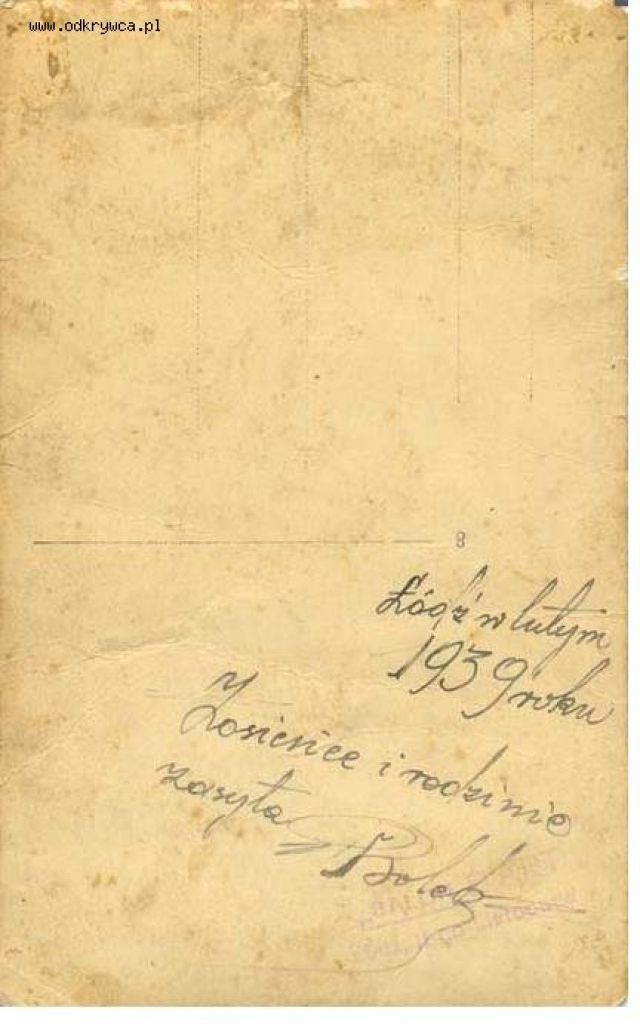 www.odkrywca.pl
8
Łódź w lutym
1939 roku
Zosieńce i rodzinie
zasyła
Bolek